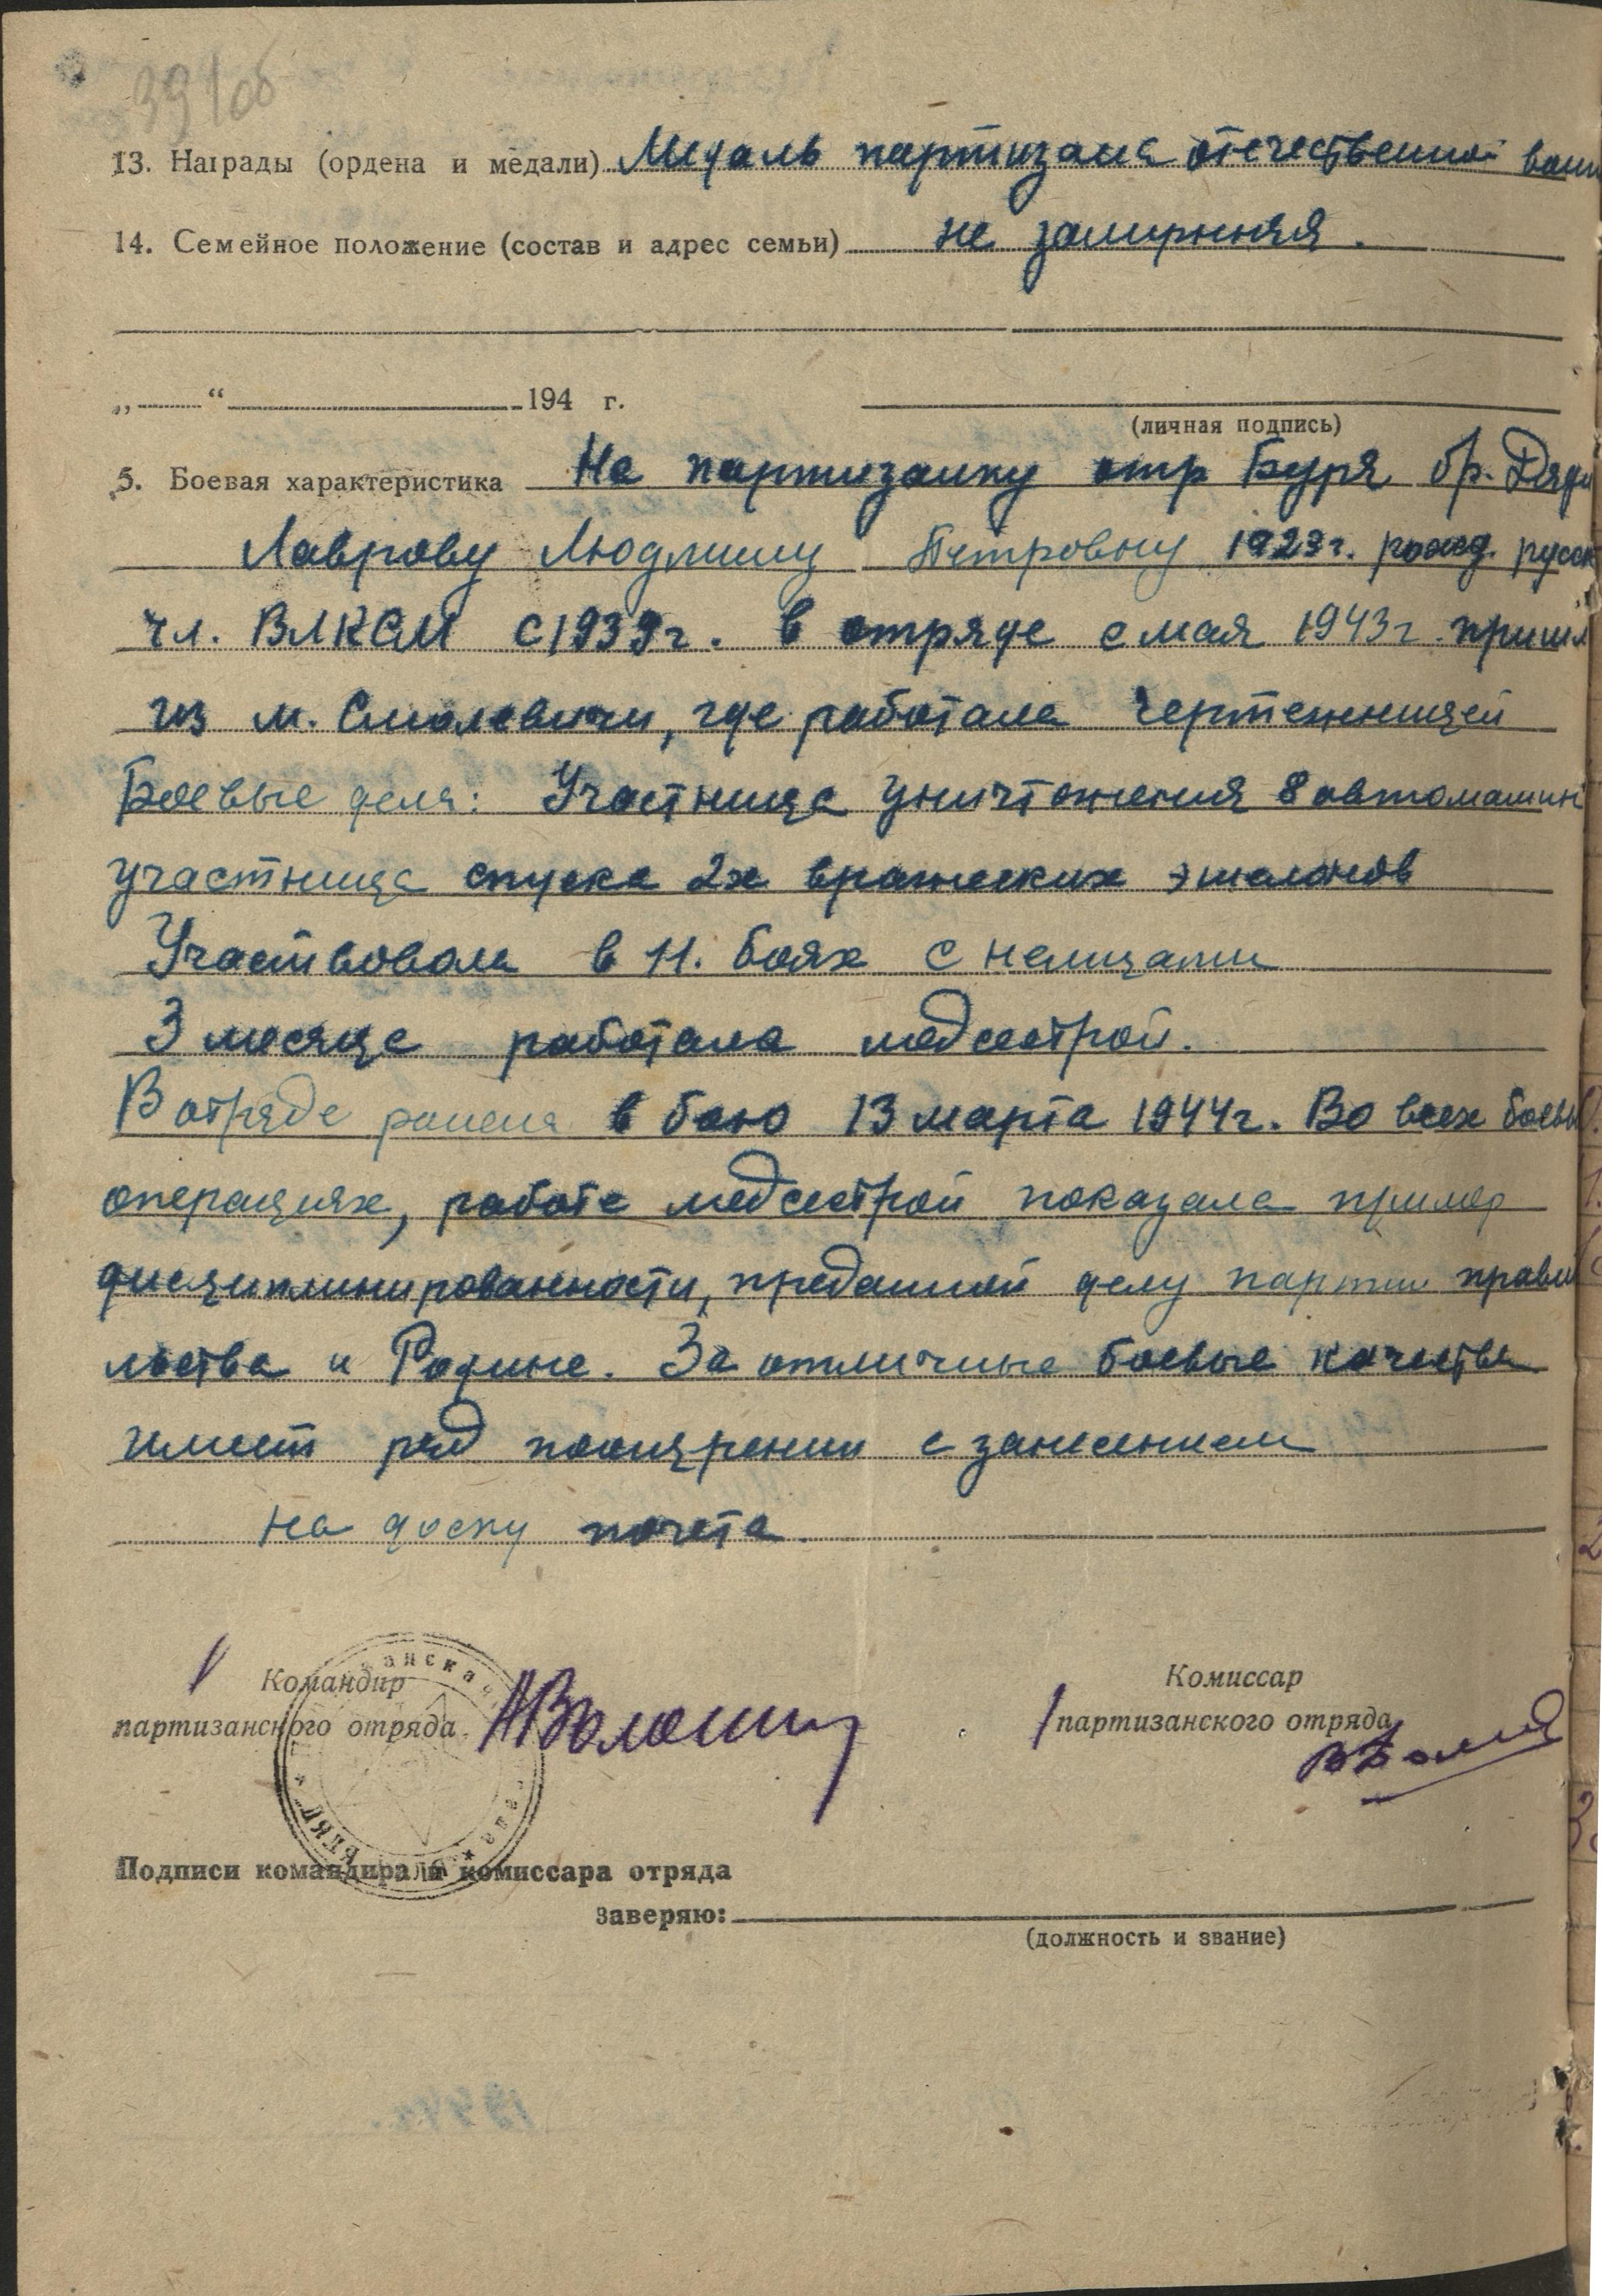 39/об
13. Награды (ордена и медали) Медаль партизана отечественной воин
14. Семейное положение (состав и адрес семьи) не замужняя.
„ “ 194 г.
(личная подпись)
5. Боевая характеристика На партизанку отр Буря бр. Дяди
Лаврову Людмилу Петровну 1923г. рожд. русск
чл. ВЛКСМ с 1939г. в отряде с мая 1943г. пришл
из м. Смолевичи, где работала чертежницей
Боевые дела: Участница уничтожения 8 автомашин
участница спуска 2х вражеских эшелонов
Участвовала в 11. боях с немцами
3 месяца работала медсестрой.
В отряде ранена в бою 13 марта 1944г. Во всех боевы
операциях, работе медсестрой показала пример
дисциплинированности, преданной делу партии прави
льства и Родине. За отличные боевые качества
имеет ряд поощрении с занесением
на доску почета.
Командир
партизанского отряда
Комиссар
партизанского отряда
Подписи командира и комиссара отряда
заверяю:
(должность и звание)